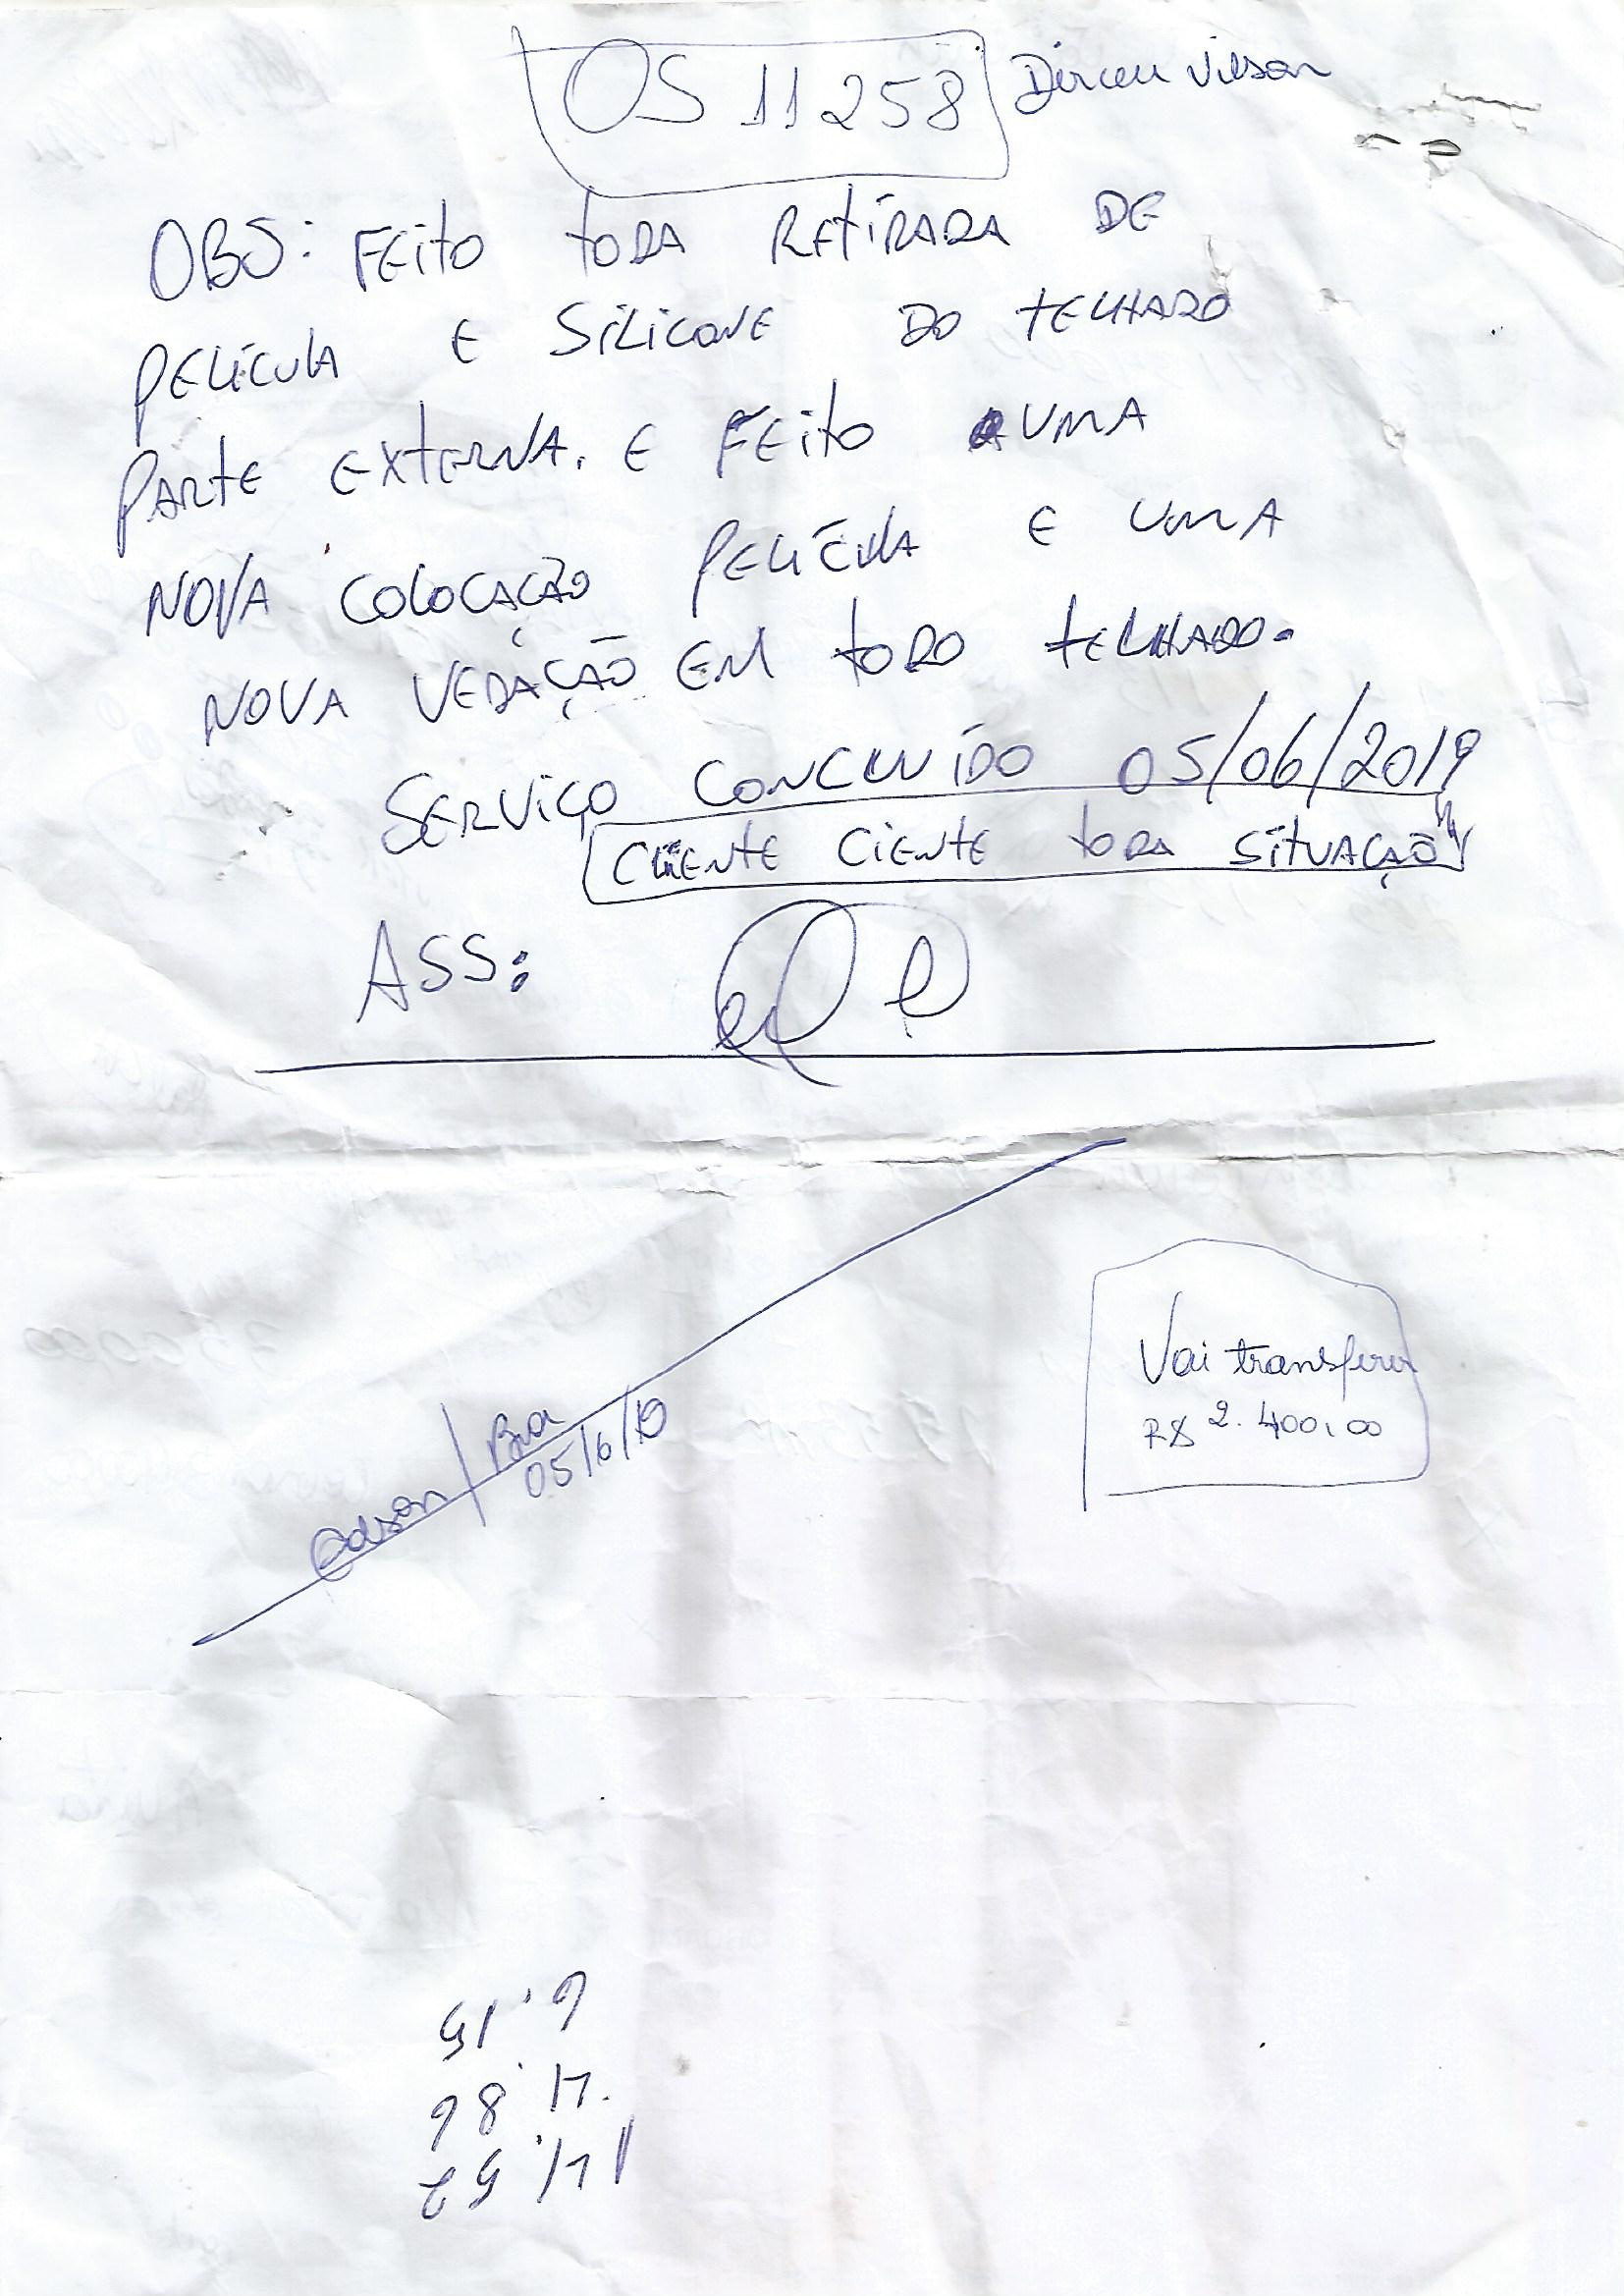 OS 11258 Dirceu Vilson
OBS: FEITO TODA RETIRADA DE
PELÍCULA E SILICONE DO TELHADO
PARTE EXTERNA. E FEITO UMA
NOVA COLOCAÇÃO PELÍCULA E UMA
NOVA VEDAÇÃO EM TODO TELHADO.
SERVIÇO CONCLUÍDO 05/06/2019
CLIENTE CIENTE TODA SITUAÇÃO
ASS:
Vai transferir
R$ 2.400,00
Edson / Bia
05/6/19